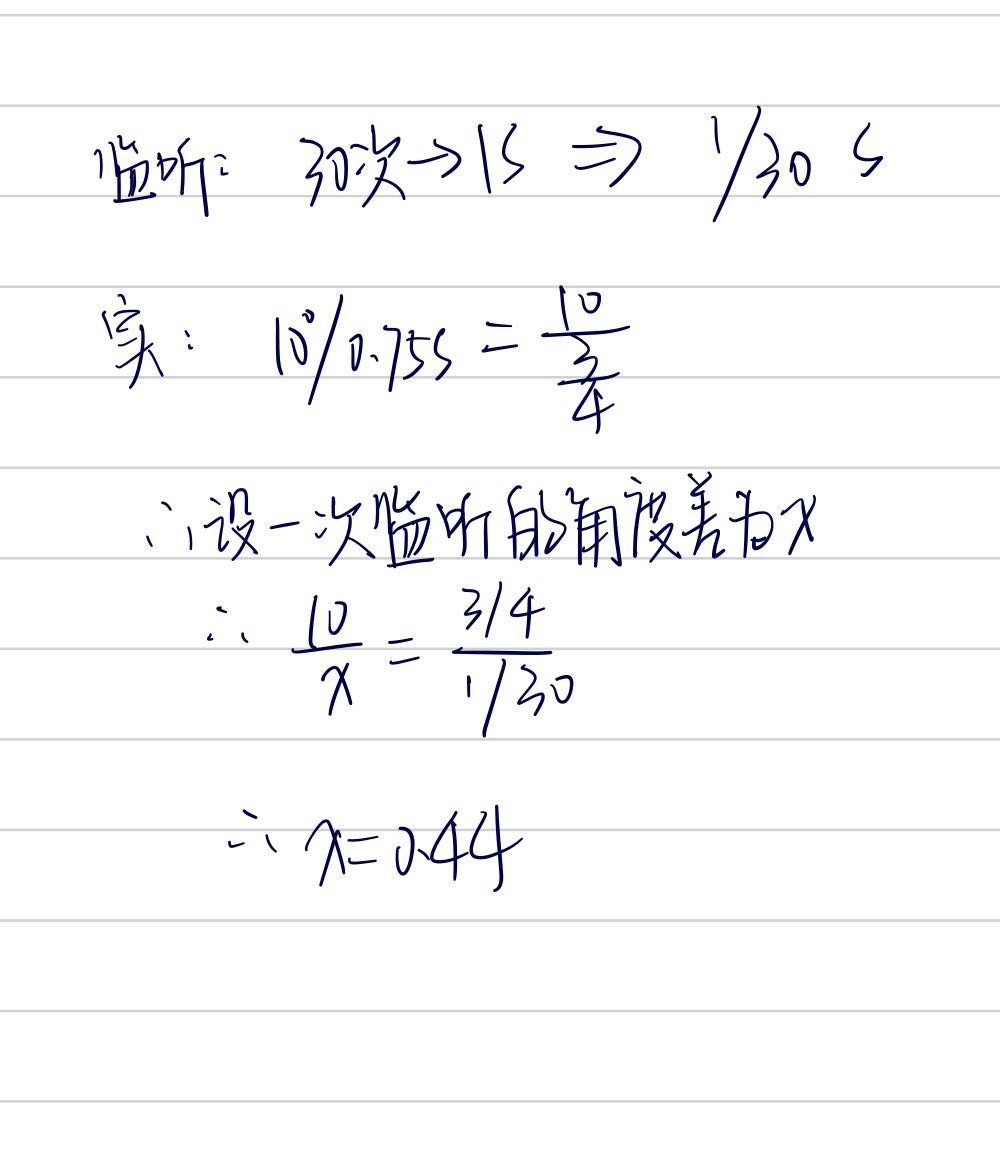 监听: 30次→1s ⇒ 1/30 s
实: 10°/0.75s = 10/(3/4)
∴ 设一次监听的角度差为x
∴ 10/x = (3/4)/(1/30)
∴ x=0.44